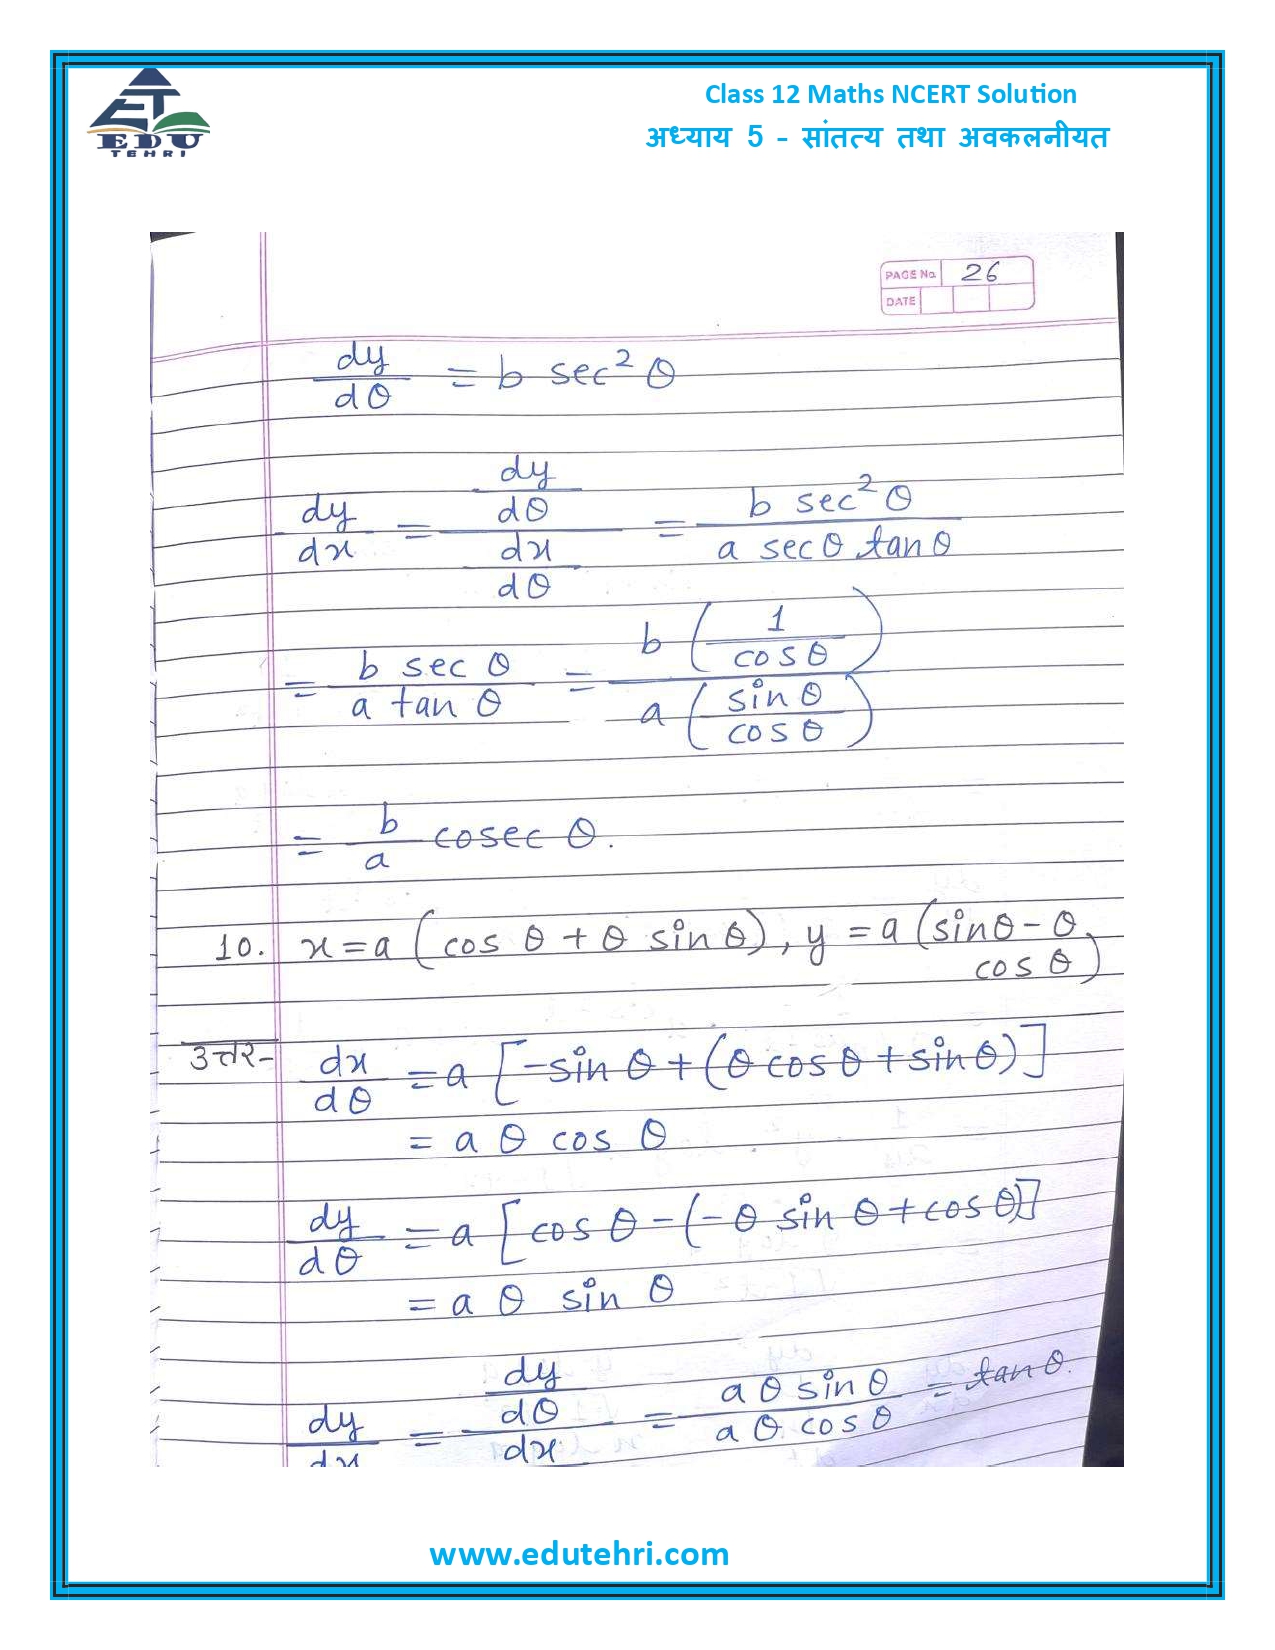 Class 12 Maths NCERT Solution
अध्याय 5 - सांतत्य तथा अवकलनीयत
EDU
TEHRI
PAGE No. 26
DATE
dy/dθ = b sec² θ
dy/dx = (dy/dθ)/(dx/dθ) = (b sec² θ)/(a secθ tanθ)
= (b sec θ)/(a tan θ) = (b (1/cosθ))/(a (sinθ/cosθ))
= b/a cosec θ.
10. x = a (cos θ + θ sinθ), y = a (sinθ - θ
cos θ)
उत्तर- dx/dθ = a [-sin θ + (θ cosθ + sinθ)]
= a θ cos θ
dy/dθ = a [cos θ - (-θ sin θ + cosθ)]
= a θ sin θ
dy/dx = (dy/dθ)/(dx = (a θ sinθ)/(a θ cosθ) = tanθ.
www.edutehri.com